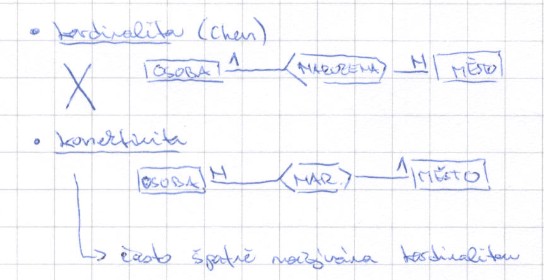 • kardinalita (Chen)
OSOBA 1 NAROZENA N MĚSTO
X
• konektivita
OSOBA N NAR. 1 MĚSTO
často špatně nazývána kardinalitou